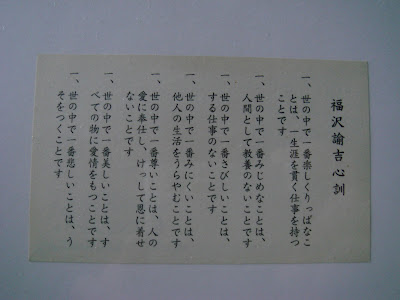 福沢諭吉心訓
一、世の中で一番楽しくりっぱなこ
とは、一生涯を貫く仕事を持つ
ことです
一、世の中で一番みじめなことは、
人間として教養のないことです
一、世の中で一番さびしいことは、
する仕事のないことです
一、世の中で一番みにくいことは、
他人の生活をうらやむことです
一、世の中で一番尊いことは、人の
愛に奉仕し、けっして恩に着せ
ないことです
一、世の中で一番美しいことは、す
べての物に愛情をもつことです
一、世の中で一番悲しいことは、う
そをつくことです